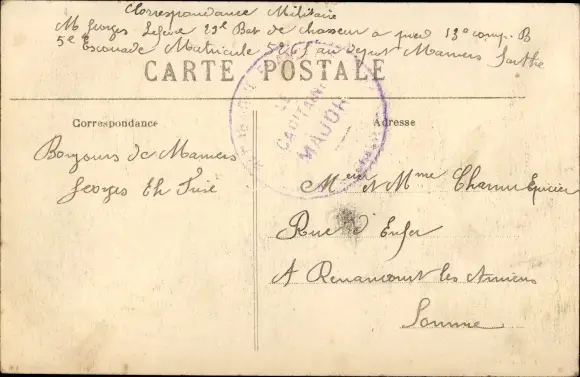 Correspondance Militaire
M Georges Lefevre 23e Bat de chasseur a pied 13e comp. B
5e Escouade Matricule au depot Mamers Sarthe
CARTE POSTALE
LE
CAPITAINE
MAJOR
Correspondance
Adresse
Bonjours de Mamers
Georges
Mr et Mme Epicier
Rue d'Enfer
A Renancourt les Amiens
Somme